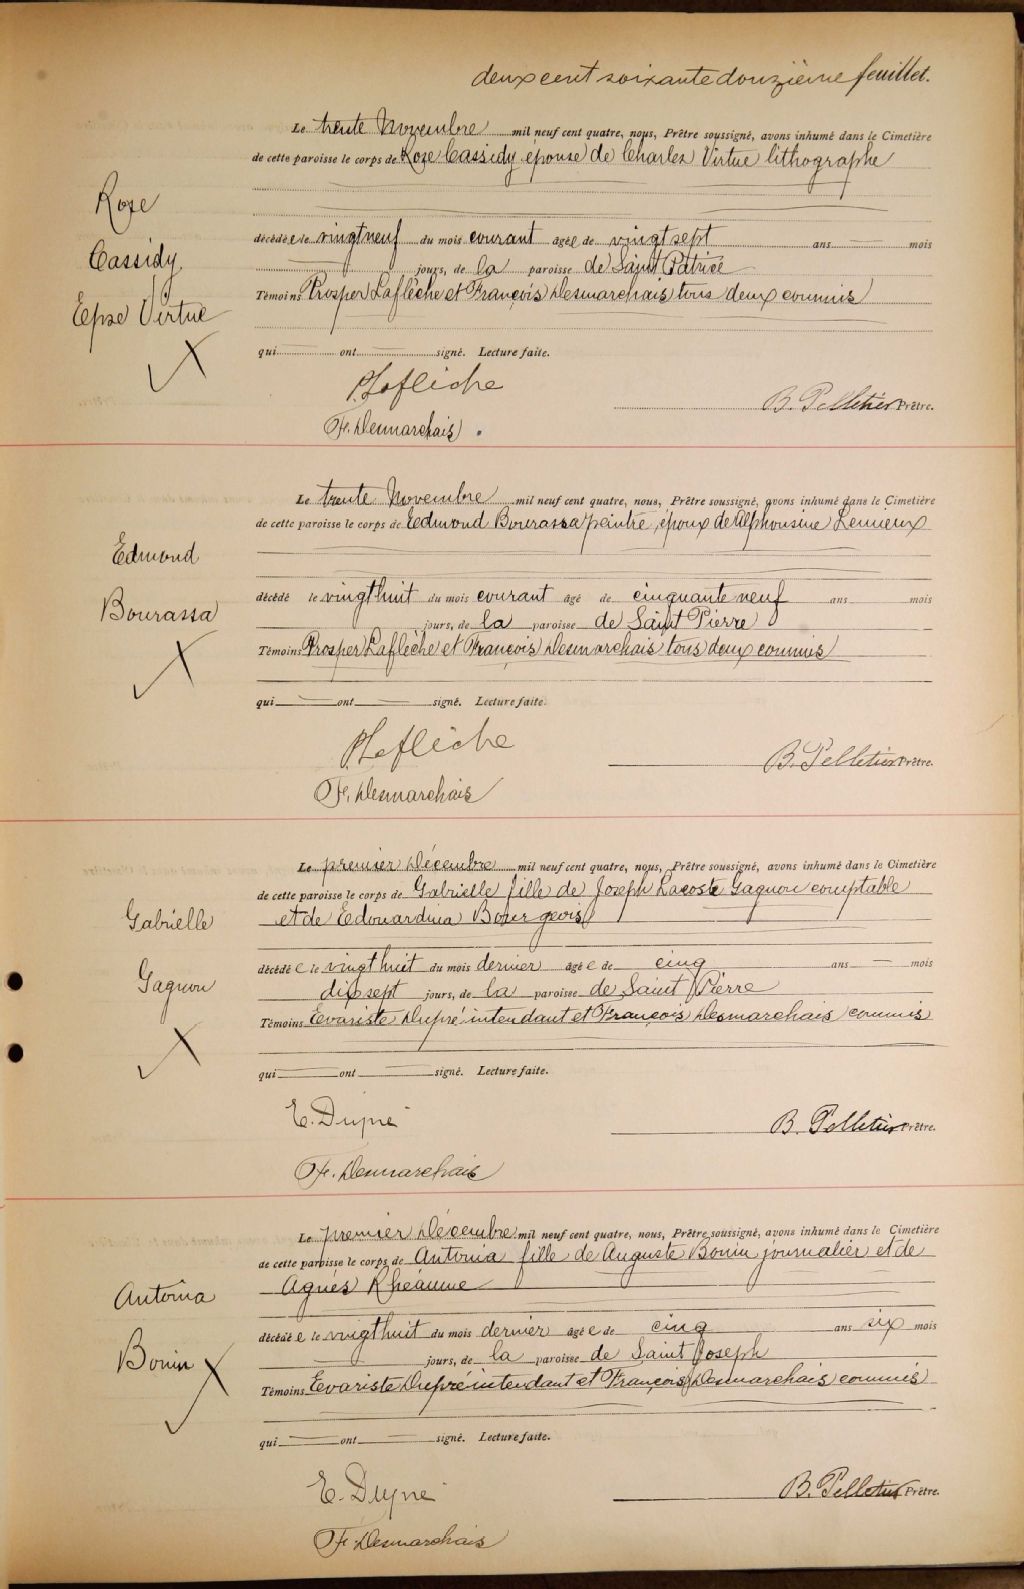 deux cent soixante douzième feuillet.
Le trente Novembre mil neuf cent quatre, nous, Prêtre soussigné, avons inhumé dans le Cimetière
de cette paroisse le corps de Rose Cassidy épouse de Charles Virtue lithographe
Rose
Cassidy
Epse Virtue
décédée le vingt neuf du mois courant agée de vingt sept ans mois
jours, de la paroisse de Saint Patrice
Témoins Prosper Laflèche et François Desmarchais tous deux commis
qui ont signé. Lecture faite.
P Laflèche
B. Pelletier Prêtre.
F. Desmarchais
Le trente Novembre mil neuf cent quatre, nous, Prêtre soussigné, avons inhumé dans le Cimetière
de cette paroisse le corps de Edmond Bourassa peintre, époux de Alphonsine Lemieux
Edmond
Bourassa
décédé le vingt huit du mois courant âgé de cinquante neuf ans mois
jours, de la paroisse de Saint Pierre
Témoins Prosper Laflèche et François Desmarchais tous deux commis
qui ont signé. Lecture faite.
P Laflèche
B. Pelletier Prêtre.
F. Desmarchais
Le premier Décembre mil neuf cent quatre, nous, Prêtre soussigné, avons inhumé dans le Cimetière
de cette paroisse le corps de Gabrielle fille de Joseph Lacoste Gagnon comptable
et de Edouardina Bourgeois
Gabrielle
Gagnon
décédée le vingt huit du mois dernier âgée de cinq ans mois
dix sept jours, de la paroisse de Saint Pierre
Témoins Evariste Dupré intendant et François Desmarchais commis
qui ont signé. Lecture faite.
E. Dupré
B. Pelletier Prêtre.
F. Desmarchais
Le premier Décembre mil neuf cent quatre, nous, Prêtre soussigné, avons inhumé dans le Cimetière
de cette paroisse le corps de Antonia fille de Auguste Bonin journalier et de
Agnès Rhéaume
Antonia
Bonin
décédée le vingt huit du mois dernier âgée de cinq ans six mois
jours, de la paroisse de Saint Joseph
Témoins Evariste Dupré intendant et François Desmarchais commis
qui ont signé. Lecture faite.
E. Dupré
B. Pelletier Prêtre.
F. Desmarchais